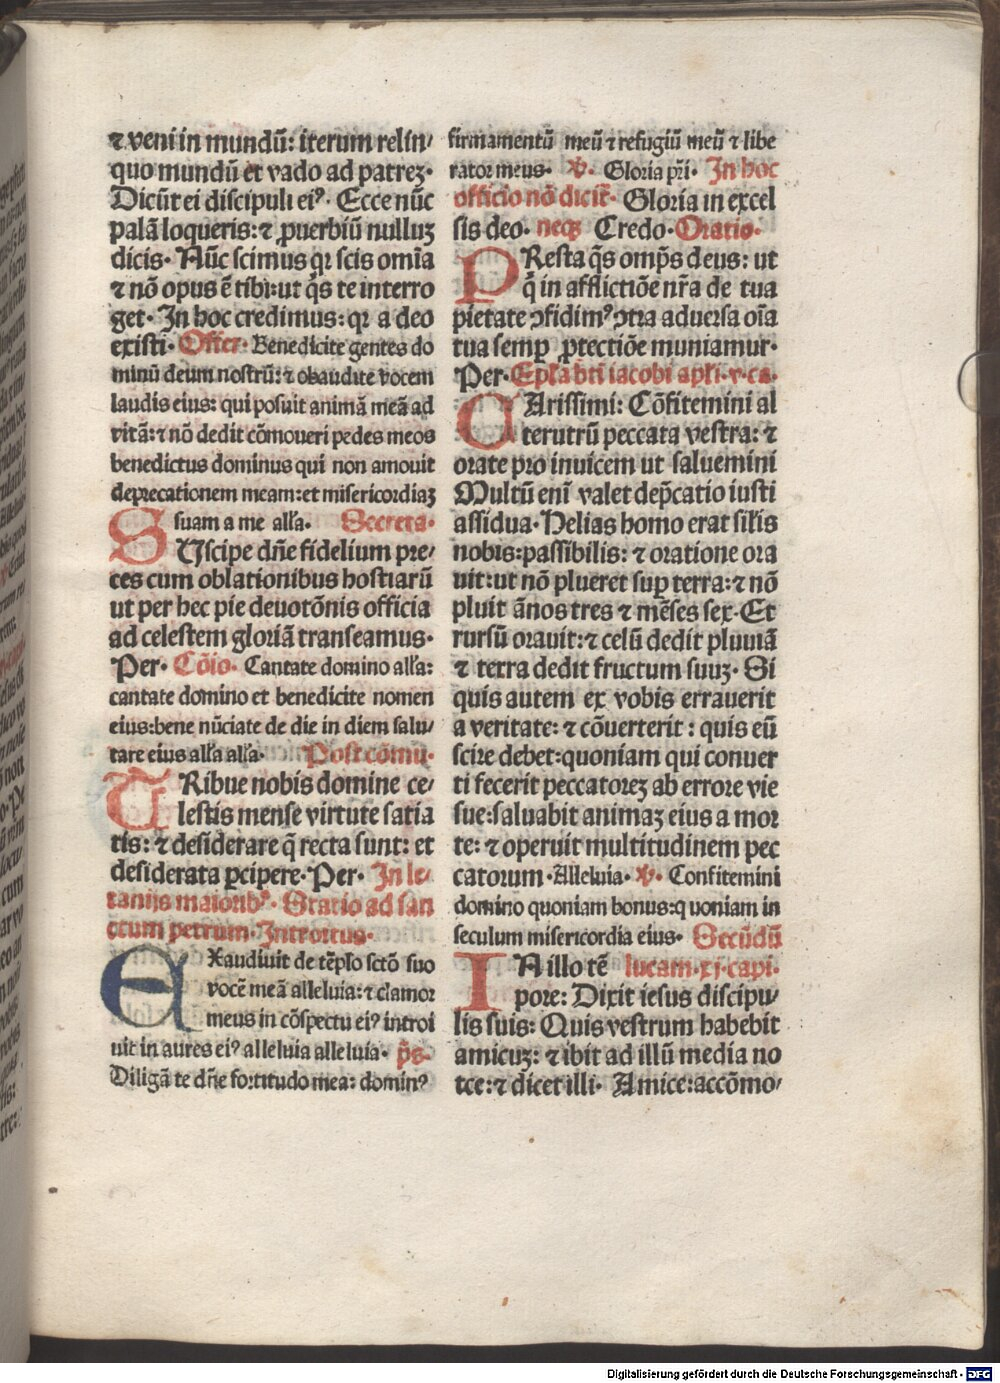 ⁊ veni in mundū: iterum relin/
quo mundū et vado ad patreꝫ·
Dicūt ei discipuli eiꝰ· Ecce nūc
palā loqueris: ⁊ ꝓuerbiū nulluꝫ
dicis· Nūc scimus qꝛ scis om̄ia
⁊ nō opus ē tibi: ut q̄s te interro
get· In hoc credimus: qꝛ a deo
existi· Offer· Benedicite gentes do
minū deum nostrū: ⁊ obaudite vocem
laudis eius: qui posuit animā meā ad
vitā: ⁊ nō dedit cōmoueri pedes meos
benedictus dominus qui non amouit
deprecationem meam: et misericordiaꝫ
suam a me alľa· Secreta·
SUscipe dn̄e fidelium pre/
ces cum oblationibus hostiarū
ut per hec pie deuotōnis officia
ad celestem gloriā transeamus·
Per· Cōio· Cantate domino alľa:
cantate domino et benedicite nomen
eius: bene nūciate de die in diem salu/
tare eius alľa alľa· Post cōmu·
TRibue nobis domine ce/
lestis mense virtute satia
tis: ⁊ desiderare q̄ recta sunt: et
desiderata ꝑcipere· Per· In le/
tanijs maiorib⁹· Statio ad san
ctum petrum· Introitus·
EXaudiuit de tēplo sctō suo
vocē meā alleluia: ⁊ clamor
meus in cōspectu eiꝰ introi
uit in aures eiꝰ alleluia alleluia· p̄s·
Diligā te dn̄e fortitudo mea: dominꝰ
firmamentū meū ⁊ refugiū meū ⁊ libe
rator meus· ℣· Gloria pr̄i· In hoc
officio nō dicit̄· Gloria in excel
sis deo· neqꝫ Credo· Oratio·
PResta q̄s omp̄s deus: ut
q̄ in afflictiōe nr̄a de tua
pietate ꝯfidimꝰ ꝯtra aduersa oīa
tua semꝑ ꝓtectiōe muniamur·
Per· Epľa bt̄i iacobi apľi· v· ca·
CArissimi: Cōfitemini al
terutrū peccata vestra: ⁊
orate pro inuicem ut saluemini
Multū eni valet dep̄catio iusti
assidua· Helias homo erat siľis
nobis: passibilis: ⁊ oratione ora
uit: ut nō plueret suꝑ terra: ⁊ nō
pluit ānos tres ⁊ mēses sex· Et
rursū orauit: ⁊ celū dedit pluuiā
⁊ terra dedit fructum suuꝫ· Si
quis autem ex vobis errauerit
a veritate: ⁊ cōuerterit: quis eū
scire debet: quoniam qui conuer
ti fecerit peccatoreꝫ ab errore vie
sue: saluabit animaꝫ eius a mor
te: ⁊ operuit multitudinem pec
catorum· Alleluia· ℣· Confitemini
domino quoniam bonus: quoniam in
seculum misericordia eius· Secūdū
IN illo tē lucam· xj· capi·
pore: Dixit iesus discipu/
lis suis: Quis vestrum habebit
amicuꝫ: ⁊ ibit ad illū media no
cte: ⁊ dicet illi· Amice: accōmo/
Digitalisierung gefördert durch die Deutsche Forschungsgemeinschaft - DFG